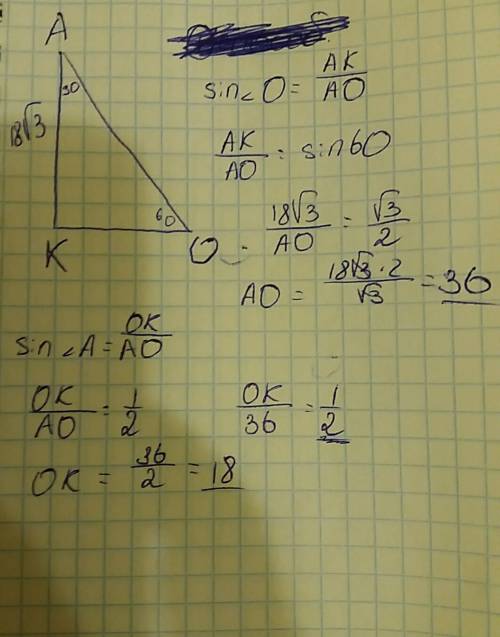 A
30
18√3
60
K
O
sin∠O = AK/AO
AK/AO = sin60
18√3/AO = √3/2
AO = 18√3·2/√3 = 36
sin∠A = OK/AO
OK/AO = 1/2
OK/36 = 1/2
OK = 36/2 = 18